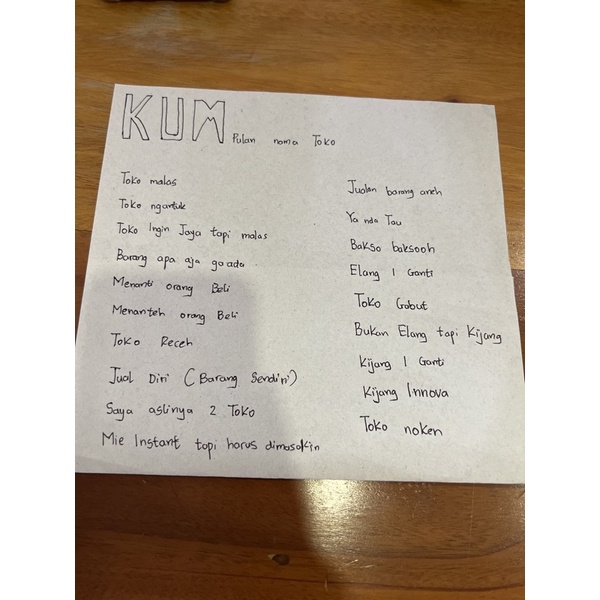 KUM Pulan nama Toko
Toko malas
Toko ngantuk
Toko Ingin Jaya tapi malas
Barang apa aja ga ada
Menanti orang Beli
Menanteh orang Beli
Toko Receh
Jual Diri (Barang Sendiri)
Saya aslinya 2 Toko
Mie Instant tapi harus dimasakin
Jualan barang aneh
Ya nda Tau
Bakso baksooh
Elang 1 Ganti
Toko Gabut
Bukan Elang tapi Kijang
Kijang 1 Ganti
Kijang Innova
Toko noken